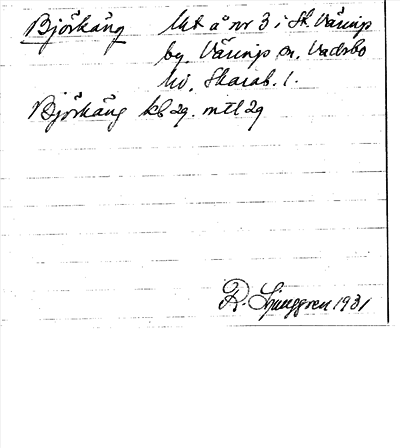 Björkäng lht å nr 3 i St. Väring
by, Väring sn, Vadsbo
hd, Skarab. l.
Björkäng kb 29. mtl 29
R. Ljunggren 1931